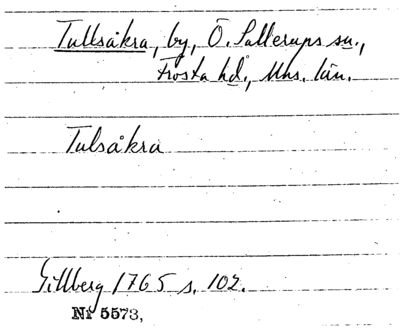 Tullsåkra, by, Ö. Sallerups sn.,
Frosta hd., Mhs. län.
Tulsåkra
Gillberg 1765 s. 102.
Nf 5573,